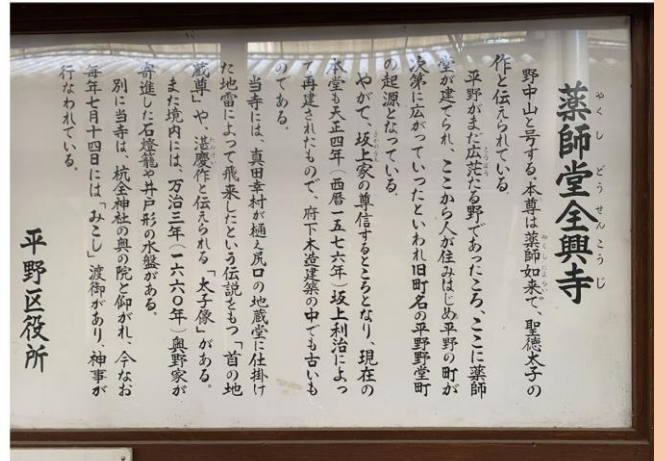 薬師堂全興寺
やくしどうせんこうじ
野中山と号する。本尊は薬師如来で、聖徳太子の
やくしにょらい
作と伝えられている。
平野がまだ広茫たる野であったころ、ここに薬師
こうぼう
堂が建てられ、ここから人が住みはじめ平野の町が
次第に広がっていったといわれ旧町名の平野野堂町
の起源となっている。
やがて、坂上家の尊信するところとなり、現在の
さかのうえ
本堂も天正四年(西暦一五七六年)坂上利治によっ
て再建されたもので、府下木造建築の中でも古いも
のである。
当寺には、真田幸村が樋え尻口の地蔵堂に仕掛け
た地雷によって飛来したという伝説をもつ「首の地
蔵尊」や、湛慶作と伝えられる「太子像」がある。
たんけい
また境内には、万治三年(一六六〇年)奥野家が
寄進した石燈籠や井戸形の水盤がある。
別に当寺は、杭全神社の奥の院と仰がれ、今なお
毎年七月十四日には「みこし」渡御があり、神事が
行なわれている。
平野区役所